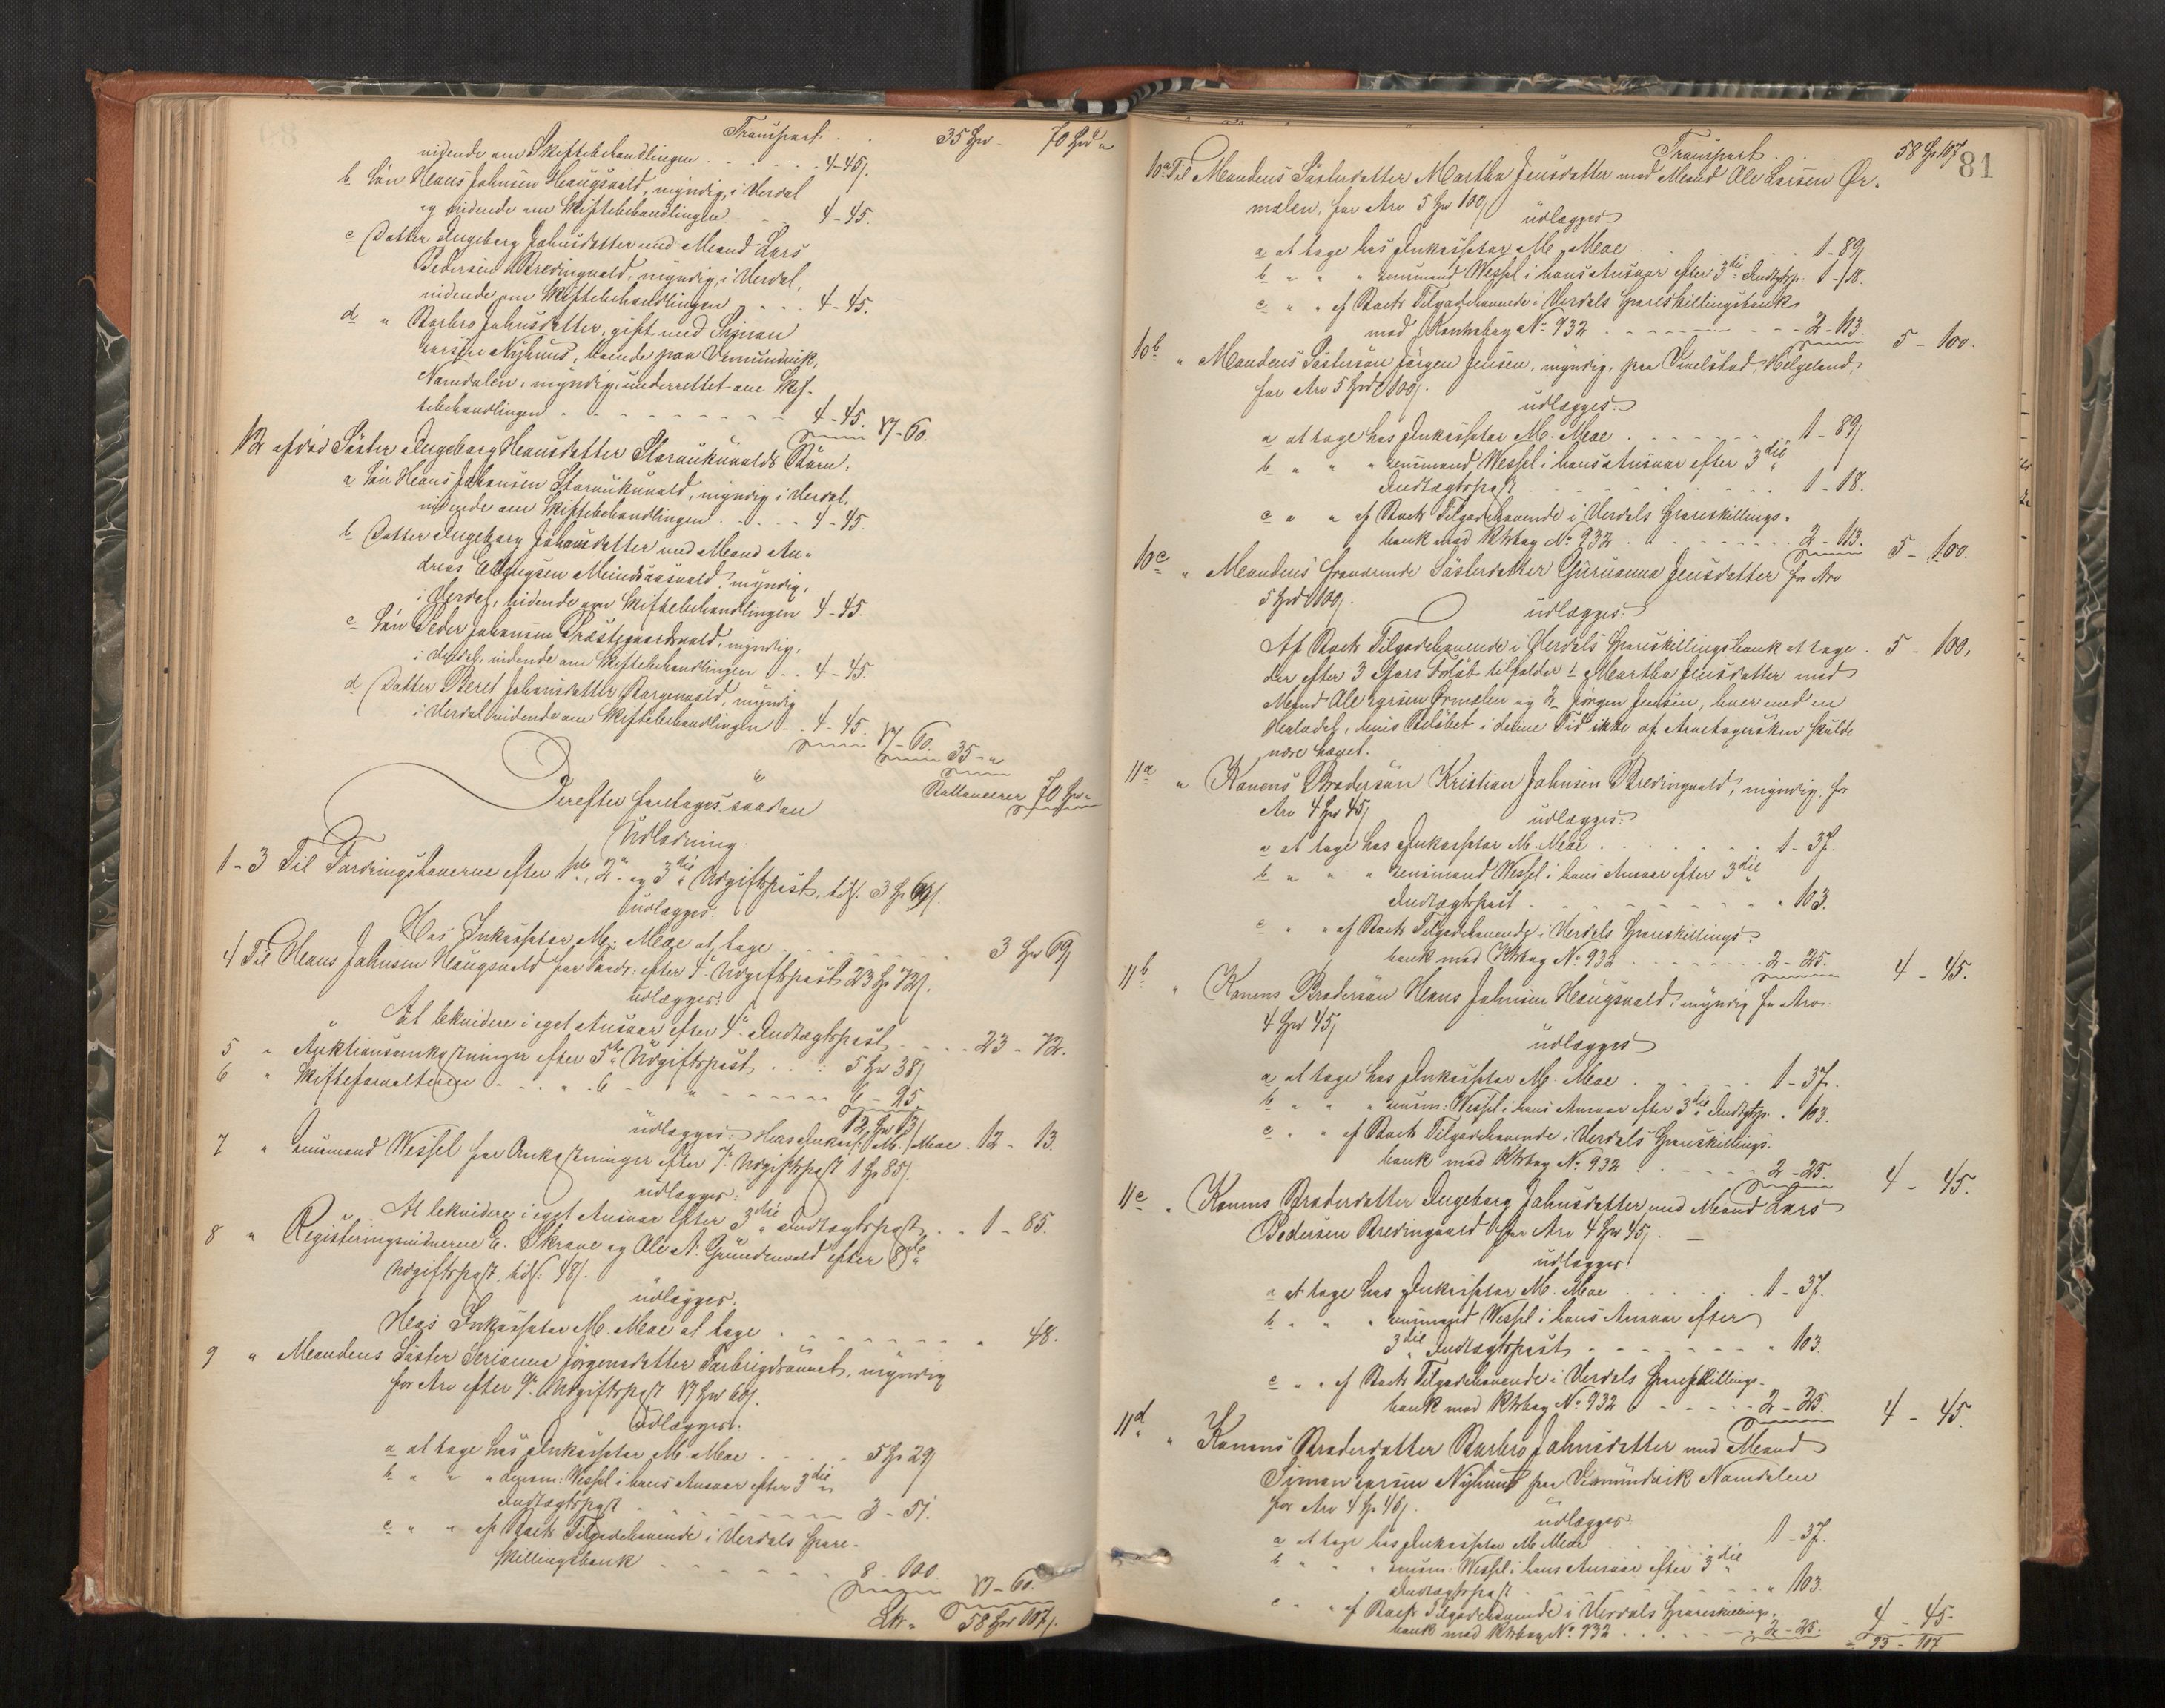 Transport . . 35 Spd - 70 Spd "
vidende om Skiftebehandlingen . . . . . . 4-45/.
b. Sön Hans Johnsen Haugsvald, myndig, i Verdal
og vidende om Skiftebehandlingen . . . 4-45.
c Datter Ingeborg Johnsdatter med Mand Lars
Pedersen Bredingvald, myndig, i Verdal,
vidende om Skiftebehandlingen . . . . 4-45.
d " Barbro Johnsdatter, gift med Simon
Larsen Nyhuus, boende paa Vemundvik,
Namdalen, myndig, underrettet om Skif-
tebehandlingen . . . . . . . . . 4-45. 17-60.
12 afdöd Söster Ingeborg Hansdatter Stornukvalds Börn:
a Sön Hans Johansen Stornukvald, myndig i Verdal,
vidende om Skiftebehandlingen . . . . . 4-45.
b Datter Ingeborg Johansdatter med Mand An-
dreas Ellingsen Mindsaasvald, myndig,
i Verdal, vidende om Skiftebehandlingen 4-45.
c Sön Peder Johansen Præstegaardsvald, myndig,
i Verdal, vidende om Skiftebehandlingen . . 4-45.
d Datter Beret Johansdatter Borgenvald, myndig
i Verdal vidende om Skiftebehandlingen . . 4-45. 17-60. 35-"
Ballancerer 70 Spd "
Derefter foretages saadan
Udlodning:
1-3 Til Fordringshaverne efter 1ste, 2den og 3die Udgiftspost, tils. 3 Sp 69/.
udlægges:
Hos Inkassator M. Moe at tage . . . . . . . 3 Spd 69/
4 Til Hans Johnsen Haugsvald for Fordr: efter 4de Udgiftspost 23 Sp 72/.
udlægges:
At lekvidere i eget Ansvar efter 4de Indtægtspost . . . 23-72.
5 " Auktionsomkostninger efter 5te Udgiftspost . . : 5 Spd 38/
6 " Skifteforvalteren - . . " . 6 - " - - - - - 6 - 95.
12 Spd 13/
udlægges: Hos Inkass. M. Moe . 12 - 13.
7 " Lensmand Wessel for Omkostninger efter 7de Udgiftspost 1 Sp 85/.
udlægges:
At lekvidere i eget Ansvar efter 3die Indtægtspost . . 1 - 85.
8 " Registeringsvidnerne E. Skrove og Ole A. Gründenvald efter 8de
Udgiftspost, tils: 48/.
udlægges.
Hos Inkassator M. Moe at tage . . . . . . . " 48.
9 " Mandens Söster Serianna Jörgensdatter Forbrigdsaunet, myndig
for Arv efter 9de Udgiftspost 17 Spd 60/.
Udlægges:
a at tage hos Inkassator M. Moe . . . . 5 Sp 29/
b " " " Lensm: Wessel i hans Ansvar efter 3die
Indtægtspost . . . . . . . . 3 - 51.
c " " af Boets Tilgodehavende i Verdals Spare-
skillingsbank . . . . . . . 8 - 100. 17-60.
Ltr. 58 Spd 107/.
81
Transport . . . 58 Sp 107/
10a Til Mandens Sösterdatter Martha Jensdatter med Mand Ole Larsen Ør-
melen, for Arv 5 Spd 100/
udlægges
a at tage hos Inkassator M. Moe . . . . 1-89/
b " " " Lensmand Wessel i hans Ansvar efter 3die Indtgtsp. 1-18.
c " " af Boets Tilgodehavende i Verdals Spareskillingsbank
med Kontrabog No 932 . . . . . . . 2-113. 5 - 100.
10b " Mandens Söstersön Jörgen Jensen, myndig, paa Vivelstad, Helgeland,
for Arv 5 Spd 100/.
udlægges:
a at tage hos Inkassator M. Moe . . . . . . . 1-89/
b " " " Lensmand Wessel i hans Ansvar efter 3die
Indtægtspost . . . . . . . . 1-18.
c " " af Boets Tilgodehavende i Verdals Spareskillings-
bank med Ktrbog No 932 . . . . . . . 2-113. 5 - 100.
10c " Mandens fraværende Sösterdatter Gurianna Jensdatter for Arv
5 Spd 100/.
udlægges:
Af Boets Tilgodehavende i Verdals Spareskillingsbank at tage . 5 - 100,
der efter 3 Aars Forløb tilfalder 1 Martha Jensdatter med
Mand Ole Larsen Ørmelen og 2 Jörgen Jensen, hver med en
Halvdel, hvis Belöbet i denne Tid ikke af Arvetagersken skulde
være hævet.
11a " Konens Brodersön Kristian Johnsen Bredingvald, myndig, for
Arv 4 Spd 45/
udlægges:
a at tage hos Inkassator M. Moe . . . . . . . 1-37.
b " " " Lensmand Wessel i hans Ansvar efter 3die
Indtægtspost . . . . . . . . " 103.
c " " af Boets Tilgodehavende i Verdals Spareskillings-
bank med Ktrbog No 932 . . . . . . . 2-25. 4 - 45.
11b " Konens Brodersön Hans Johnsen Haugsvald, myndig for Arv:
4 Spd 45/
udlægges
a at tage hos Inkassator M. Moe . . . . . 1-37.
b " " " Lensm: Wessel i hans Ansvar efter 3die Indtgtsp. " 103.
c " " af Boets Tilgodehavende i Verdals Spareskillings-
bank med Ktrbog No 932 . . . . . . 2-25. 4 - 45.
11c " Konens Broderdatter Ingeborg Johnsdatter med Mand Lars
Pedersen Bredingvald for Arv 4 Spd 45/.
udlægges:
a at tage hos Inkassator M. Moe . . . . . . 1-37.
b " " " Lensmand Wessel i hans Ansvar efter
3die Indtægtspost . . . . . . . " 103.
c " " af Boets Tilgodehavende i Verdals Spareskillings-
bank med Ktrbog No 932 . . . . . . 2-25. 4 - 45.
11d " Konens Broderdatter Barbro Johnsdatter med Mand
Simon Larsen Nyhuus paa Vemundvik Namdalen
for Arv 4 Sp 45/.
udlægges
a at tage hos Inkassator M. Moe . . . . 1-37.
b " " " Lensm. Wessel i hans Ansvar efter 3die
Indtægtspost . . . . . . . " 103.
c " " af Boets Tilgodehavende i Verdals Spareskillings-
bank med Ktrbog No 932 . . . . . . 2-25. 4 - 45.
93 - 107